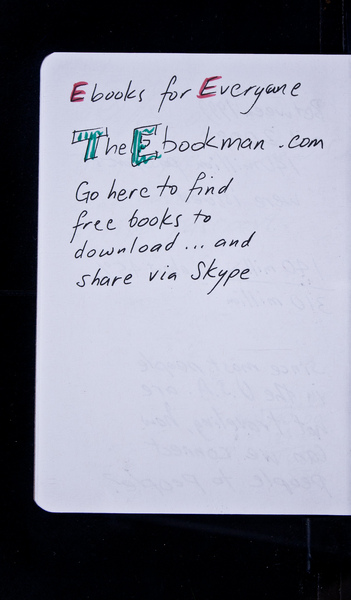 Ebooks for Everyone
TheEbookman.com
Go here to find
free books to
download... and
share via Skype